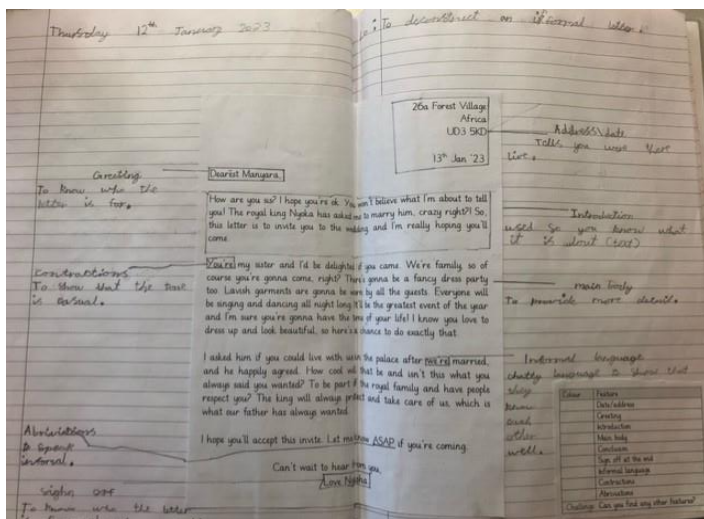 Thursday 12th January 2023
To deconstruct an informal letter.
26a Forest Village
Africa
UD3 5KD
13th Jan '23
Address\date
Tells you were they
live.
Greeting
To know who the
letter is for.
Dearest Manyara,
How are you sis? I hope you're ok. You won't believe what I'm about to tell
you! The royal king Nyoka has asked me to marry him, crazy right?! So,
this letter is to invite you to the wedding and I'm really hoping you'll
come.
Introduction
used so you know what
it is about (text)
Contractions
To show that the tone
is casual.
You're my sister and I'd be delighted if you came. We're family, so of
course you're gonna come, right? There's gonna be a fancy dress party
too. Lavish garments are gonna be worn by all the guests. Everyone will
be singing and dancing all night long. It'll be the greatest event of the year
and I'm sure you're gonna have the time of your life! I know you love to
dress up and look beautiful, so here's a chance to do exactly that.
main body
To provide more detail.
I asked him if you could live with us in the palace after we're married,
and he happily agreed. How cool will that be and isn't this what you
always said you wanted? To be part of the royal family and have people
respect you? The king will always protect and take care of us, which is
what our father has always wanted.
Informal language
chatty language to show that
they
know
each
other
well.
Abriviations
informal.
I hope you'll accept this invite. Let me know ASAP if you're coming.
Can't wait to hear from you,
Love Nyasha
To know who the letter
Colour Feature
Date/address
Greeting
Introduction
Main body
Conclusion
Sign off at the end
Informal language
Contractions
Abriviations
Challenge: Can you find any other features?